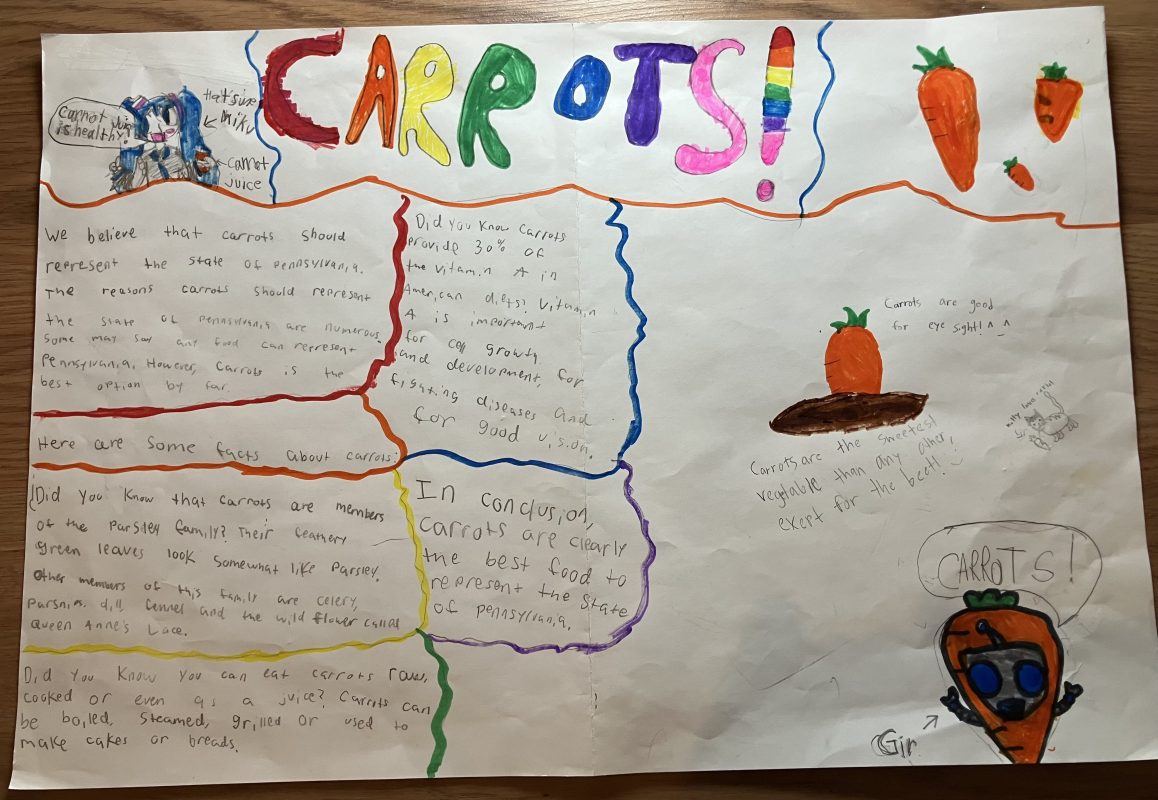 CARROTS!
Carrot Juice
is healthy!
Hatsune
Miku
Carrot
juice
We believe that carrots should
represent the state of Pennsylvania.
The reasons carrots should represent
the state of Pennsylvania are numerous.
Some may say any food can represent
Pennsylvania. However, Carrots is the
best option by far.
Here are some facts about carrots:
Did you know that carrots are members
of the Parsley family? Their feathery
green leaves look somewhat like Parsley.
Other members of this family are celery,
Parsnip, dill, fennel and the wild flower called
Queen Anne's Lace.
Did you know you can eat carrots raw,
cooked or even as a juice? Carrots can
be boiled, steamed, grilled or used to
make cakes or breads.
Did you know Carrots
provide 30% of
the vitamin A in
American diets? Vitamin
A is important
for cell growth
and development, for
fighting diseases and
for good vision.
In conclusion,
carrots are clearly
the best food to
represent the State
of Pennsylvania.
Carrots are good
for eye sight! ^_^
Kitty love
Carrots are the sweetest
vegtable than any other,
exept for the beet! :)
CARROTS!
Gir